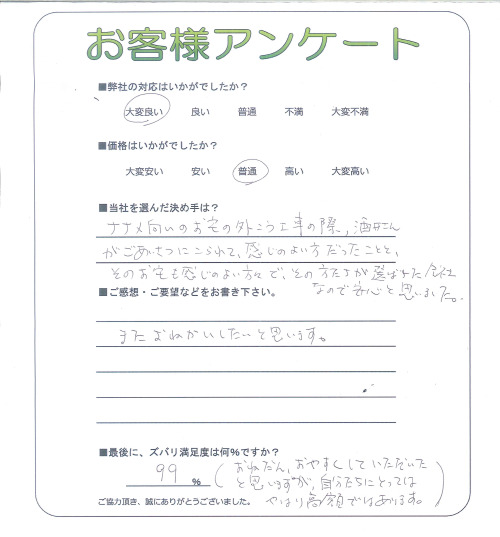 お客様アンケート
■弊社の対応はいかがでしたか?
大変良い 良い 普通 不満 大変不満
■価格はいかがでしたか?
大変安い 安い 普通 高い 大変高い
■当社を選んだ決め手は?
ナナメ向いのお宅の外こう工事の際，酒井さん
がごあいさつにこられて，感じのよい方だったことと，
そのお宅も感じのよい方々で、その方たちが選ばれた会社
なので安心と思いました。
■ご感想・ご要望などをお書き下さい。
またおねがいしたいと思います。
■最後に、ズバリ満足度は何%ですか?
99 %
(おねだん，おやすくしていただいた
と思いますが，自分たちにとっては
やはり高額ではあります。)
ご協力頂き、誠にありがとうございました。